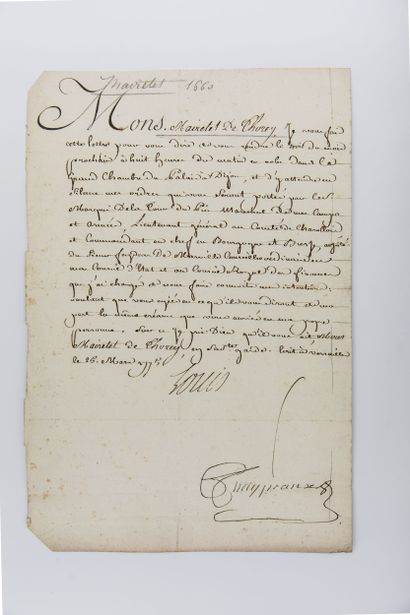 Mairetet 1660
Mons. Mairetet De Thorey Je vous fais
cette lettre pour vous dire de vous rendre le trois du mois
prochain à huit heures du matin en robe dans la
Grand Chambre du Palais de Dijon, et d'y attendre en
silence mes ordres qui vous seront portés par le S.
Marquis De la Tour du Pin Maréchal De mes Camps
et Armées, Lieutenant général au Comté de Charollois
et Commandant en chef en Bourgogne et Bresse, assisté
du Sieur Conseiller
mon Conseil d'Etat et au Conseil Royal des finances
que j'ai chargé de vous faire connoitre mes intentions;
voulant que vous ajoutiés à ce qu'il vous diront de ma
part la même créance que vous auriés en ma propre
personne. Sur ce Je prie Dieu qu'il vous ait Mons.
Mairetet de Thorey en sa ste garde. Ecrit à Versailles
le 26 Mars 177
Louis